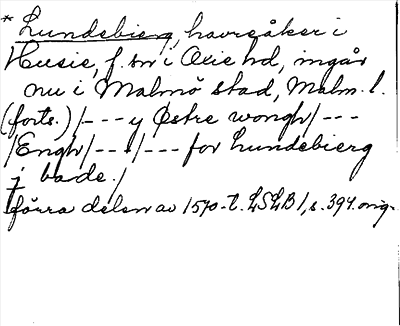 * Lundebierg, havreåker i
Husie, f. sn i Oxie hd, ingår
nu i Malmö stad, Malm. l.
(forts.) /--- y Østre wongh/---
/Engh/---/--- for Lundebierg
j bade./
förra delen av 1570-t. LSLB 1, s. 394. orig.